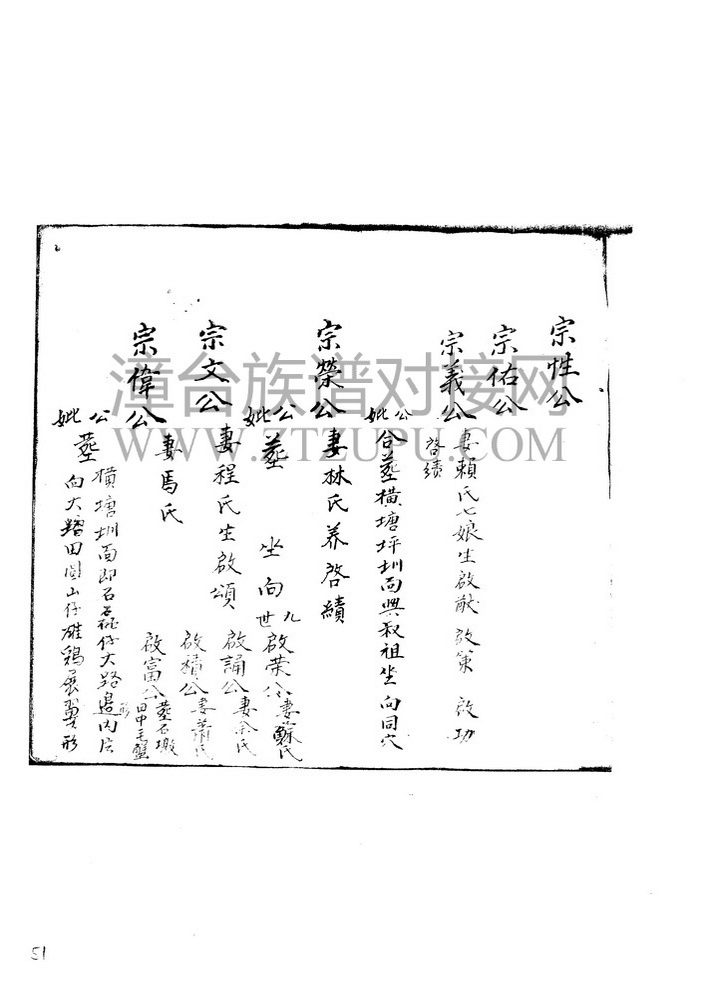 宗性公
宗佑公
宗義公 妻賴氏七娘生啟猷 啟策 啟功
啓績
公妣合葬橫塘坪圳面與叔祖坐向同穴
宗榮公 妻林氏养啓績
公妣葬 坐向
九世 啟荣公妻蘇氏
宗文公 妻程氏生啟頌
啟誦公妻余氏
啟積公妻蕭氏
宗偉公 妻馬氏
啟富公葬石墩田中毛蟹形
公妣葬橫塘圳面即石 仔大路邊内片
向大 田圓山仔雄鶏展翼形
漳台族谱对接网
WWW.ZTZUPU.COM
51